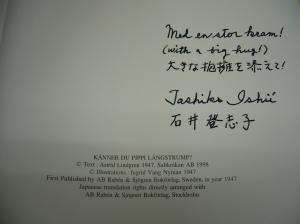 Med en stor kram!
(with a big hug!)
大きな抱擁を添えて!
Toshiko Ishii
石井登志子
KÄNNER DU PIPPI LÅNGSTRUMP?
© Text : Astrid Lindgren 1947, Saltkråkan AB 1998
© Illustrations : Ingrid Vang Nyman 1947
First Published by AB Rabén & Sjögren Bokförlag, Sweden, in year 1947
Japanese translation rights directly arranged with
AB Rabén & Sjögren Bokförlag, Stockholm